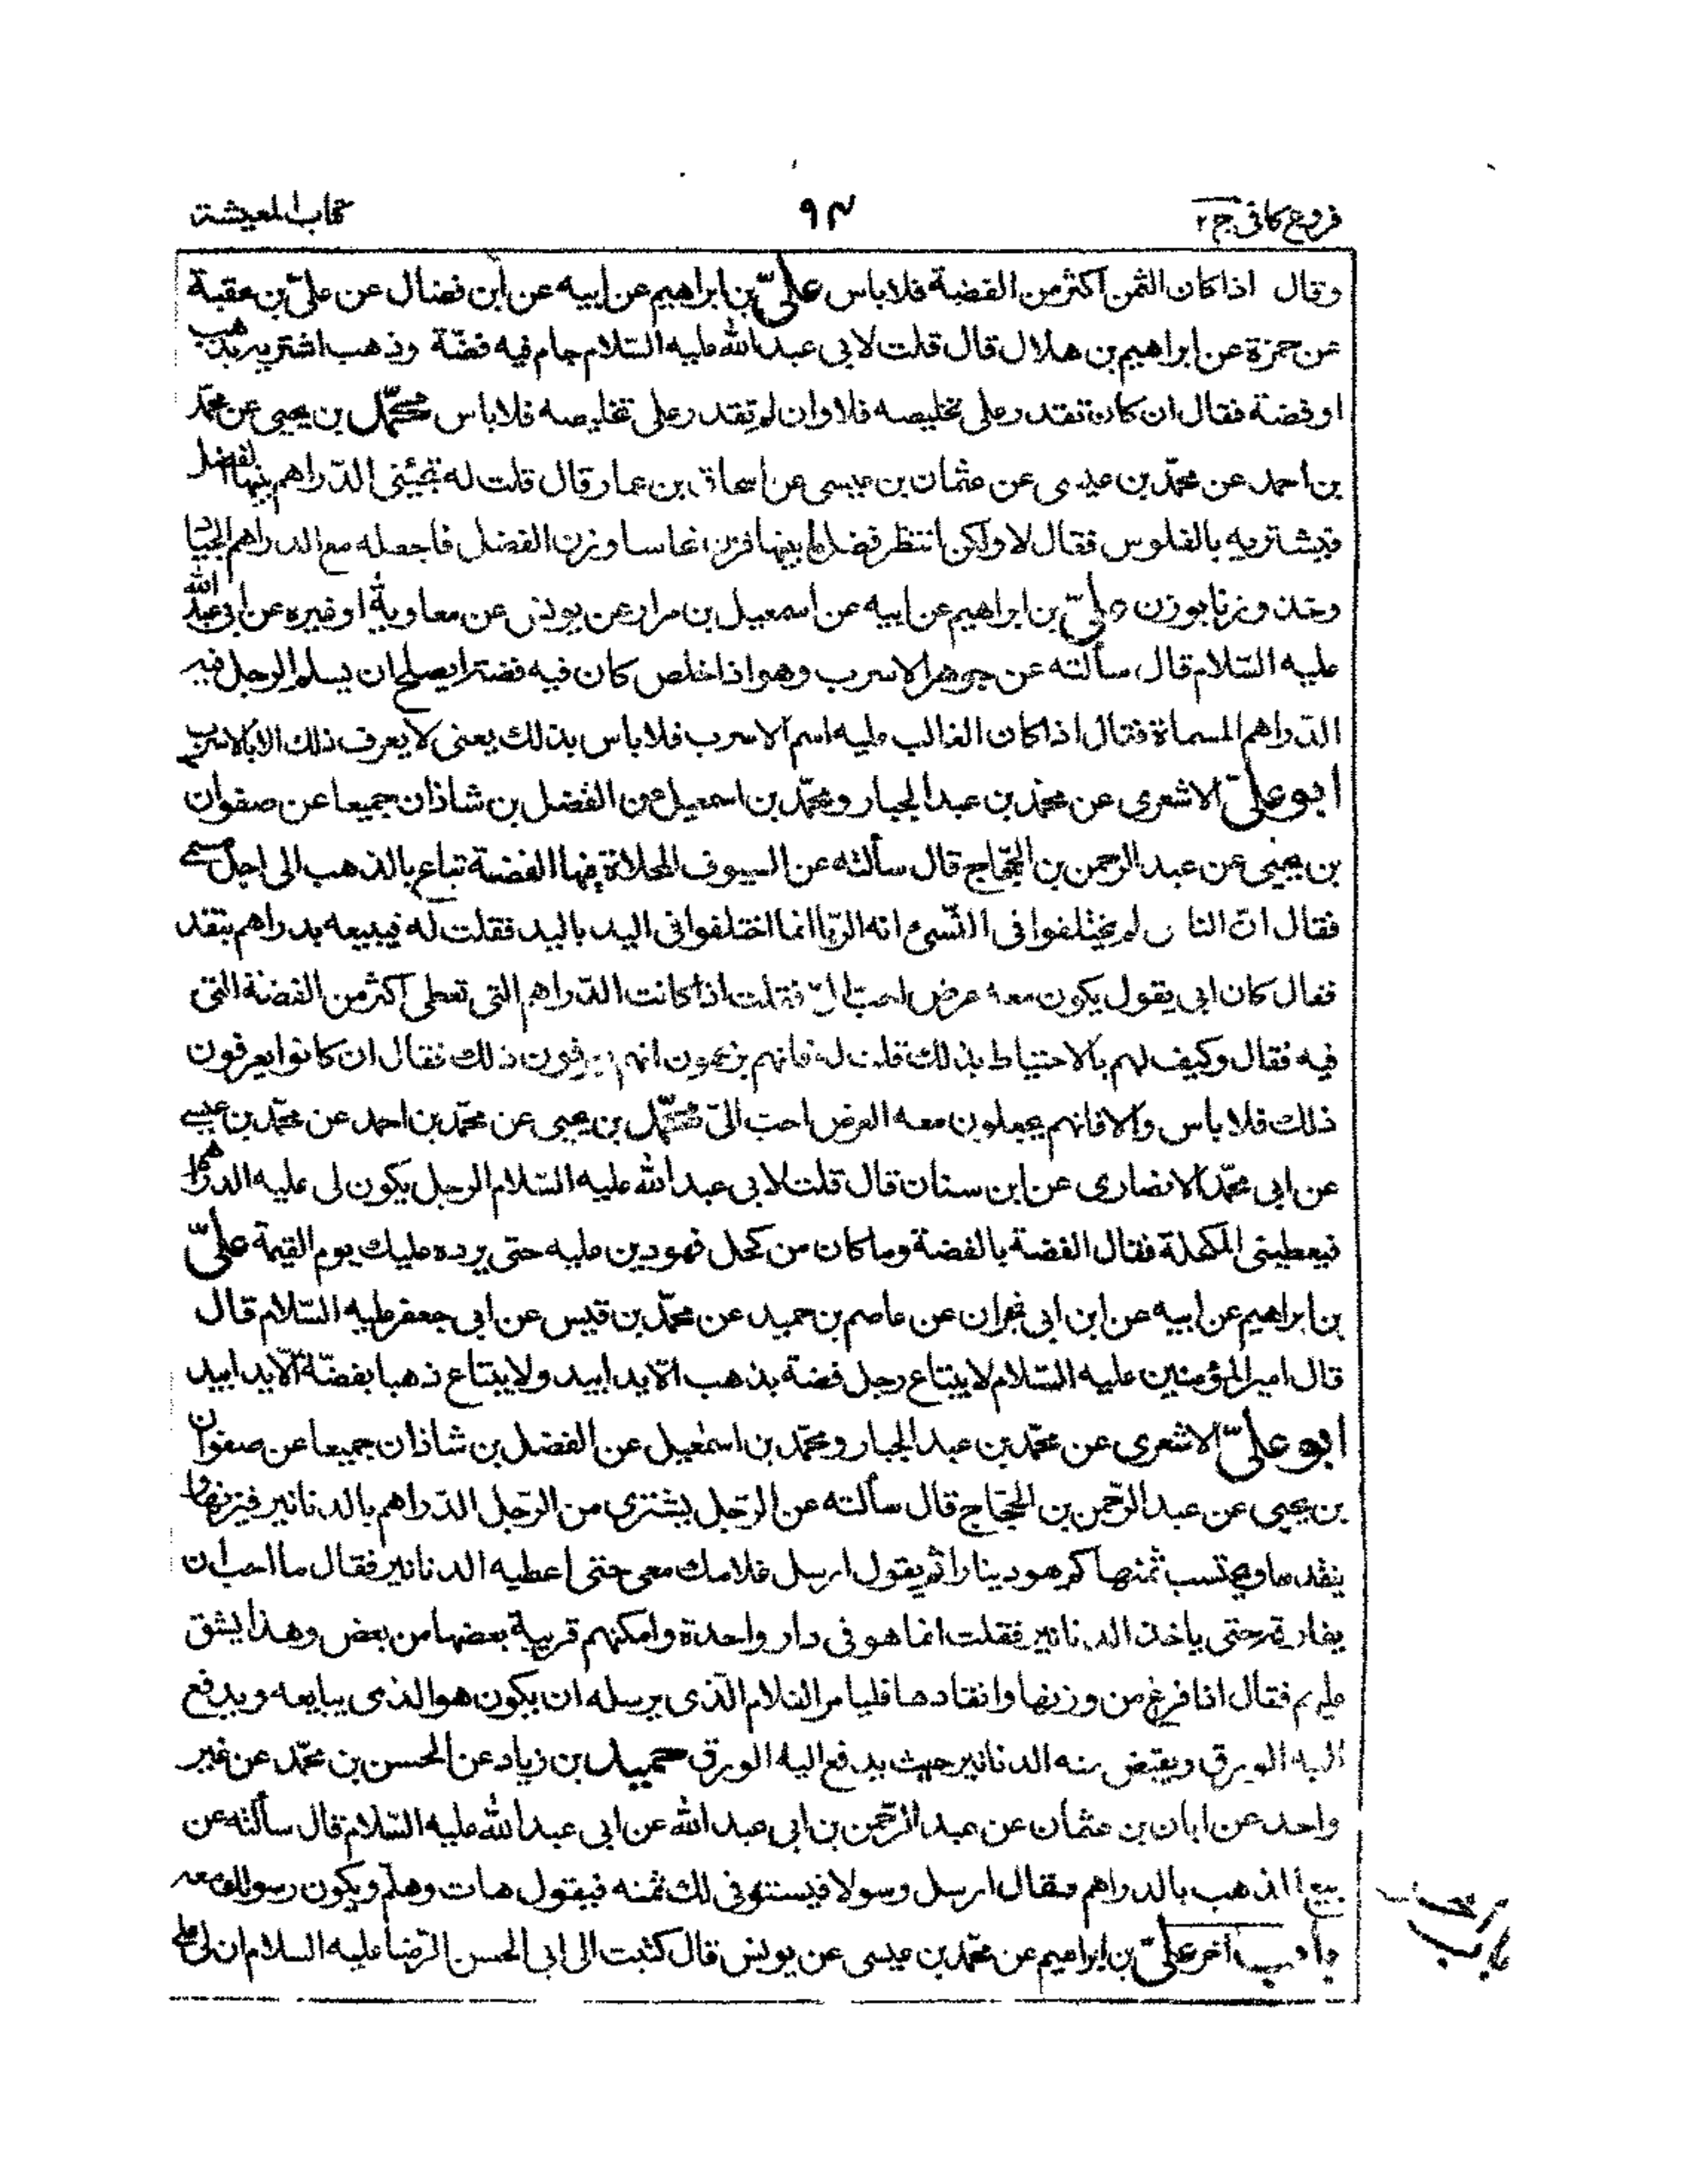 فروع كافي ج ٢
٩٤
كتاب المعيشة
وقال اذا كان الثمن اكثر من الفضة فلا باس علىّ بن ابراهيم عن ابيه عن ابن فضال عن علىّ بن عقبة
عن حمزة عن ابراهيم بن هلال قال قلت لابى عبد الله عليه السّلام جام فيه فضّة وذهب اشتريه بذهب
او فضة فقال ان كان تقدر على تخليصه فلا وان لم تقدر على تخليصه فلا باس محمّد بن يحيى عن محمّد
بن احمد عن محمّد بن عيسى عن عثمان بن عيسى عن اسحاق بن عمار قال قلت له تجيئنى الدّراهم بينها الفضل
فنشتريه بالفلوس فقال لا ولكن انظر فضل ما بينها فزن نحاسا وزن الفضل فاجعله مع الدراهم الجياد
وخذ وزنا بوزن علىّ بن ابراهيم عن ابيه عن اسمعيل بن مرار عن يونس عن معاوية او غيره عن ابى عبد الله
عليه السّلام قال سألته عن جوهر الاسرب وهو اذا خلص كان فيه فضة ايصلح ان يسلم الرجل فيه
الدّراهم المسماة فقال اذا كان الغالب عليه اسم الاسرب فلا باس بذلك يعنى لا يعرف ذلك الا بالاسرب
ابو علىّ الاشعرى عن محمّد بن عبد الجبار ومحمّد بن اسمعيل عن الفضل بن شاذان جميعا عن صفوان
بن يحيى عن عبد الرحمن بن الحجّاج قال سألته عن السيوف المحلاة فيها الفضة تباع بالذهب الى اجل مسمى
فقال انّ الناس لم يختلفوا فى النّسىء انه الرّبا انما اختلفوا فى اليد باليد فقلت له فيبيعه بدراهم بنقد
فقال كان ابى يقول يكون معه عرض احبّ الىّ فقلت اذا كانت الدّراهم التى تعطى اكثر من الفضة التى
فيه فقال وكيف لهم بالاحتياط بذلك قلت له فانهم يزعمون انهم يعرفون ذلك فقال ان كانوا يعرفون
ذلك فلا باس والا فانهم يجعلون معه العرض احب الىّ محمّد بن يحيى عن محمّد بن احمد عن محمّد بن عيسى
عن ابى محمّد الانصارى عن ابن سنان قال قلت لابى عبد الله عليه السّلام الرجل يكون لى عليه الدراهم
فيعطينى المكحلة فقال الفضة بالفضة وما كان من كحل فهو دين عليه حتى يرده عليك يوم القيمة علىّ
بن ابراهيم عن ابيه عن ابن ابى نجران عن عاصم بن حميد عن محمّد بن قيس عن ابى جعفر عليه السّلام قال
قال امير المؤمنين عليه السّلام لا يبتاع رجل فضة بذهب الّا يدا بيد ولا يبتاع ذهبا بفضّة الّا يدا بيد
ابو علىّ الاشعرى عن محمّد بن عبد الجبار ومحمّد بن اسمعيل عن الفضل بن شاذان جميعا عن صفوان
بن يحيى عن عبد الرّحمن بن الحجّاج قال سألته عن الرّجل يشترى من الرّجل الدّراهم بالدنانير فيزنها و
ينقدها ويحتسب ثمنها كم هو دينارا ثم يقول ارسل غلامك معى حتى اعطيه الدنانير فقال ما احب ان
يفارقه حتى ياخذ الدنانير فقلت انما هو فى دار واحدة وامكنهم قريبة بعضها من بعض وهذا يشق
عليهم فقال اذا فرغ من وزنها وانقادها فليامر الغلام الّذى يرسله ان يكون هو الذى يبايعه ويدفع
اليه الورق ويقبض منه الدنانير حيث يدفع اليه الورق حميد بن زياد عن الحسن بن محمّد عن غير
واحد عن ابان بن عثمان عن عبد الرّحمن بن ابى عبد الله عن ابى عبد الله عليه السّلام قال سألته عن
بيع الذهب بالدراهم فقال ارسل رسولا فيستوفى لك ثمنه فيقول هات وهلم ويكون رسولك معه
باب آخر علىّ بن ابراهيم عن محمّد بن عيسى عن يونس قال كتبت الى ابى الحسن الرّضا عليه السلام ان لى على
باب